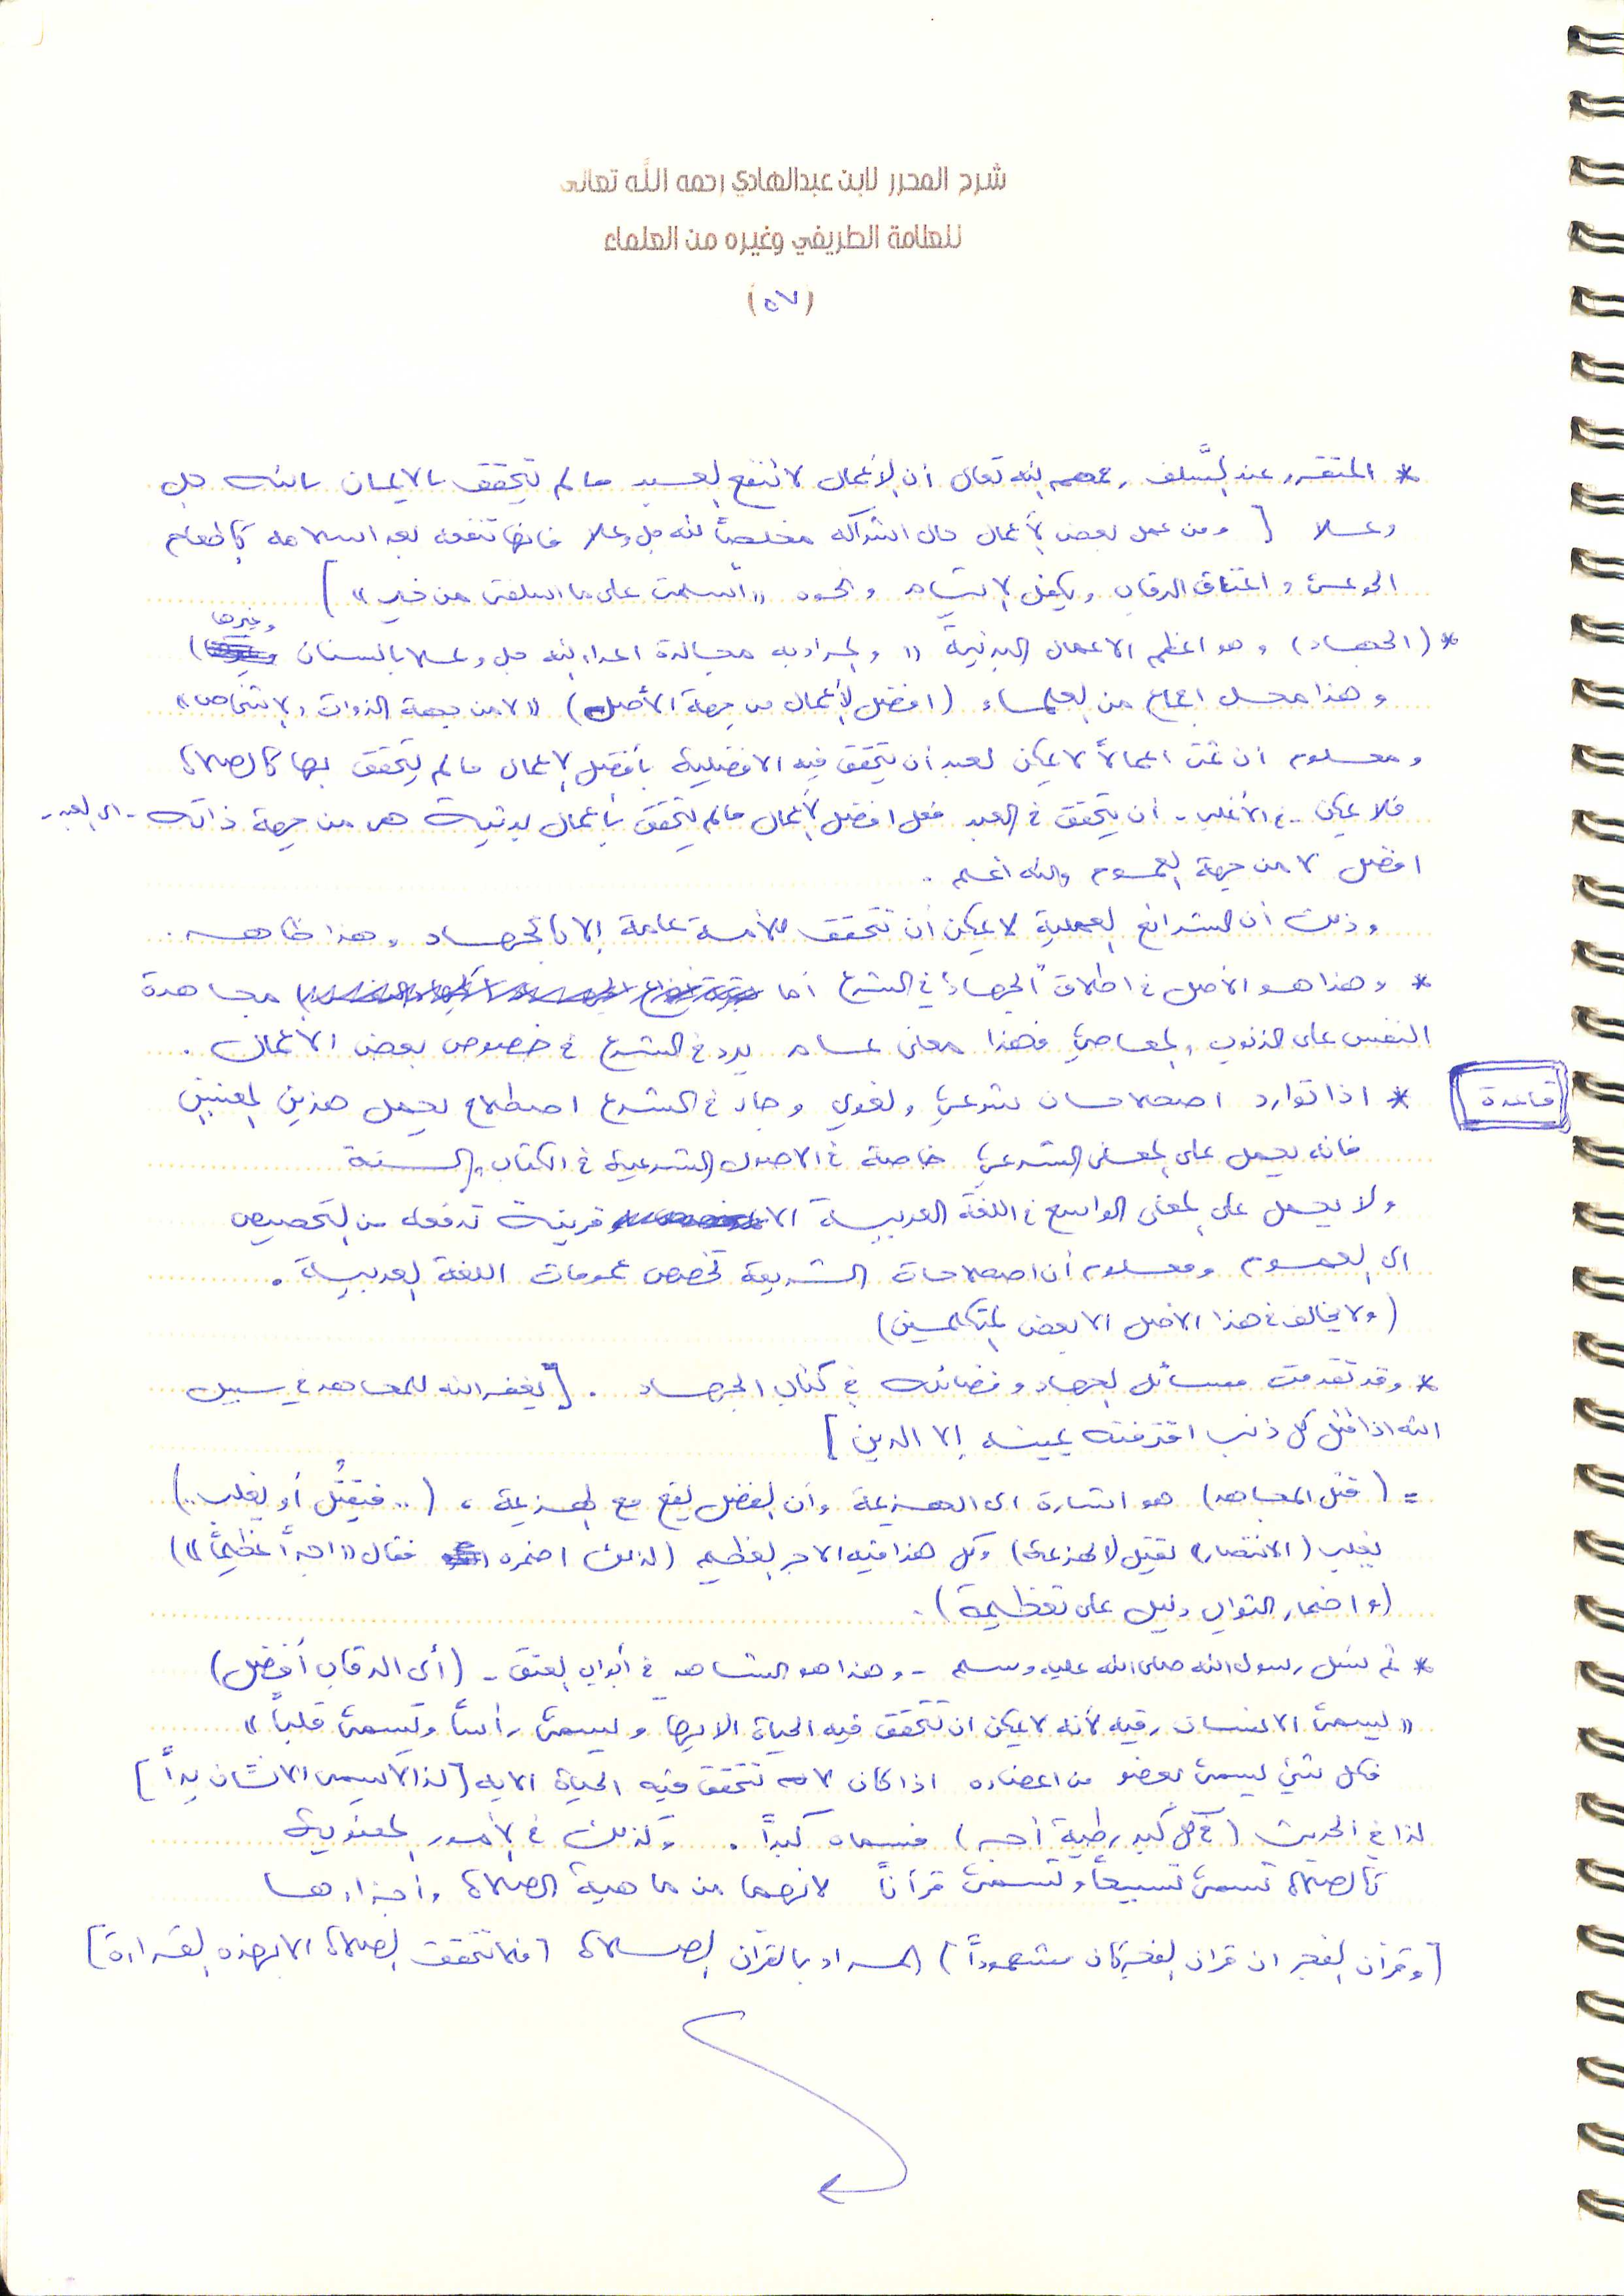 شرح المحرر لابن عبدالهادي رحمه الله تعالى
للعلامة الطريفي وغيره من العلماء
(٥٧)
* المتقرر عند السَّلف رحمهم الله تعالى أن الأعمال لا تنفع العبد ما لم يتحقق بالايمان بالله جل
وعلا [ ومن عمل بعض الأعمال حال اشراكه مخلصاً لله جل وعلا فانها تنفعه بعد اسلامه كإطعام
الجوعى و اعتاق الرقاب وكفل الايتام ونحوه «أسلمت على ما اسلفت من خير» ]
* (الجهاد) وهو اعظم الاعمال البدنية (( والمراد به مجالدة اعداء الله جل وعلا بالسنان وغيرها )
وهذا محل اجماع من العلماء (افضل الأعمال من جهة الأصل) «لا من جهة الذوات والاشخاص»
ومعلوم ان ثمت اعمالاً لا يمكن لعبد أن يتحقق فيه الافضلية بأفضل الاعمال ما لم يتحقق بها كالصلاة
فلا يمكن - في الأغلب - أن يتحقق في العبد فعل افضل الأعمال ما لم يتحقق بأعمال بدنية هي من جهة ذاته - اي العبد -
افضل لا من جهة العموم والله اعلم .
وذلك أن الشرائع العملية لا يمكن أن تتحقق للأمة عامة إلا بالجهاد وهذا ظاهر .
* وهذا هو الأصل في اطلاق "الجهاد" في الشرع أما مجاهدة
النفس على الذنوب والمعاصي فهذا معنى عام يرد في الشرع في خصوص بعض الأعمال .
قاعدة
* اذا توارد اصطلاحان شرعي ولغوي وجاء في الشرع اصطلاح يحمل هذين المعنيين
فانه يحمل على المعنى الشرعي خاصة في الاصول الشرعية في الكتاب والسنة
ولا يحمل على المعنى الواسع في اللغة العربية الا قرينة تدفعه من التخصيص
الى العموم ومعلوم أن اصطلاحات الشريعة تخصص عمومات اللغة العربية .
(ولا يخالف في هذا الاصل الا بعض المتكلمين)
* وقد تقدمت مسائل الجهاد وفضائله في كتاب الجهاد . [ يغفر الله للمجاهد في سبيل
الله اذا قتل كل ذنب اقترفته يمينه إلا الدين ]
= (قتل المجاهد) هو اشارة الى الهزيمة وأن الفضل يقع مع الهزيمة ، (.. فيقتل أو يغلب ..)
يغلب (الانتصار) يقتل (الهزيمة) وكل هذا فيه الاجر العظيم (لذلك اضمره فقال «اجراً عظيماً»)
(و اضمار الثواب دليل على تعظيمه) .
* ثم سئل رسول الله صلى الله عليه وسلم - وهذا هو الشاهد في أبواب العتق - (أى الرقاب أفضل)
«يسمى الانسان رقبه لأنه لا يمكن ان تتحقق فيه الحياة الا بها ويسمى رأساً ويسمى قلباً»
فكل شئ يسمى بعضو من اعضاءه اذا كان لا تتحقق فيه الحياة الا به [لذا لا يسمى الانسان يداً]
لذا في الحديث (في كل كبد رطبة أجر) فسماه كبداً . وكذلك في الأمور المعنوية
كالصلاة تسمى تسبيحاً وتسمى قرآناً لانهما من ماهية الصلاة وأجزاءها
[وقرآن الفجر ان قرآن الفجر كان مشهوداً) المراد بالقرآن الصلاة (فلا تتحقق الصلاة الا بهذه القراءة]